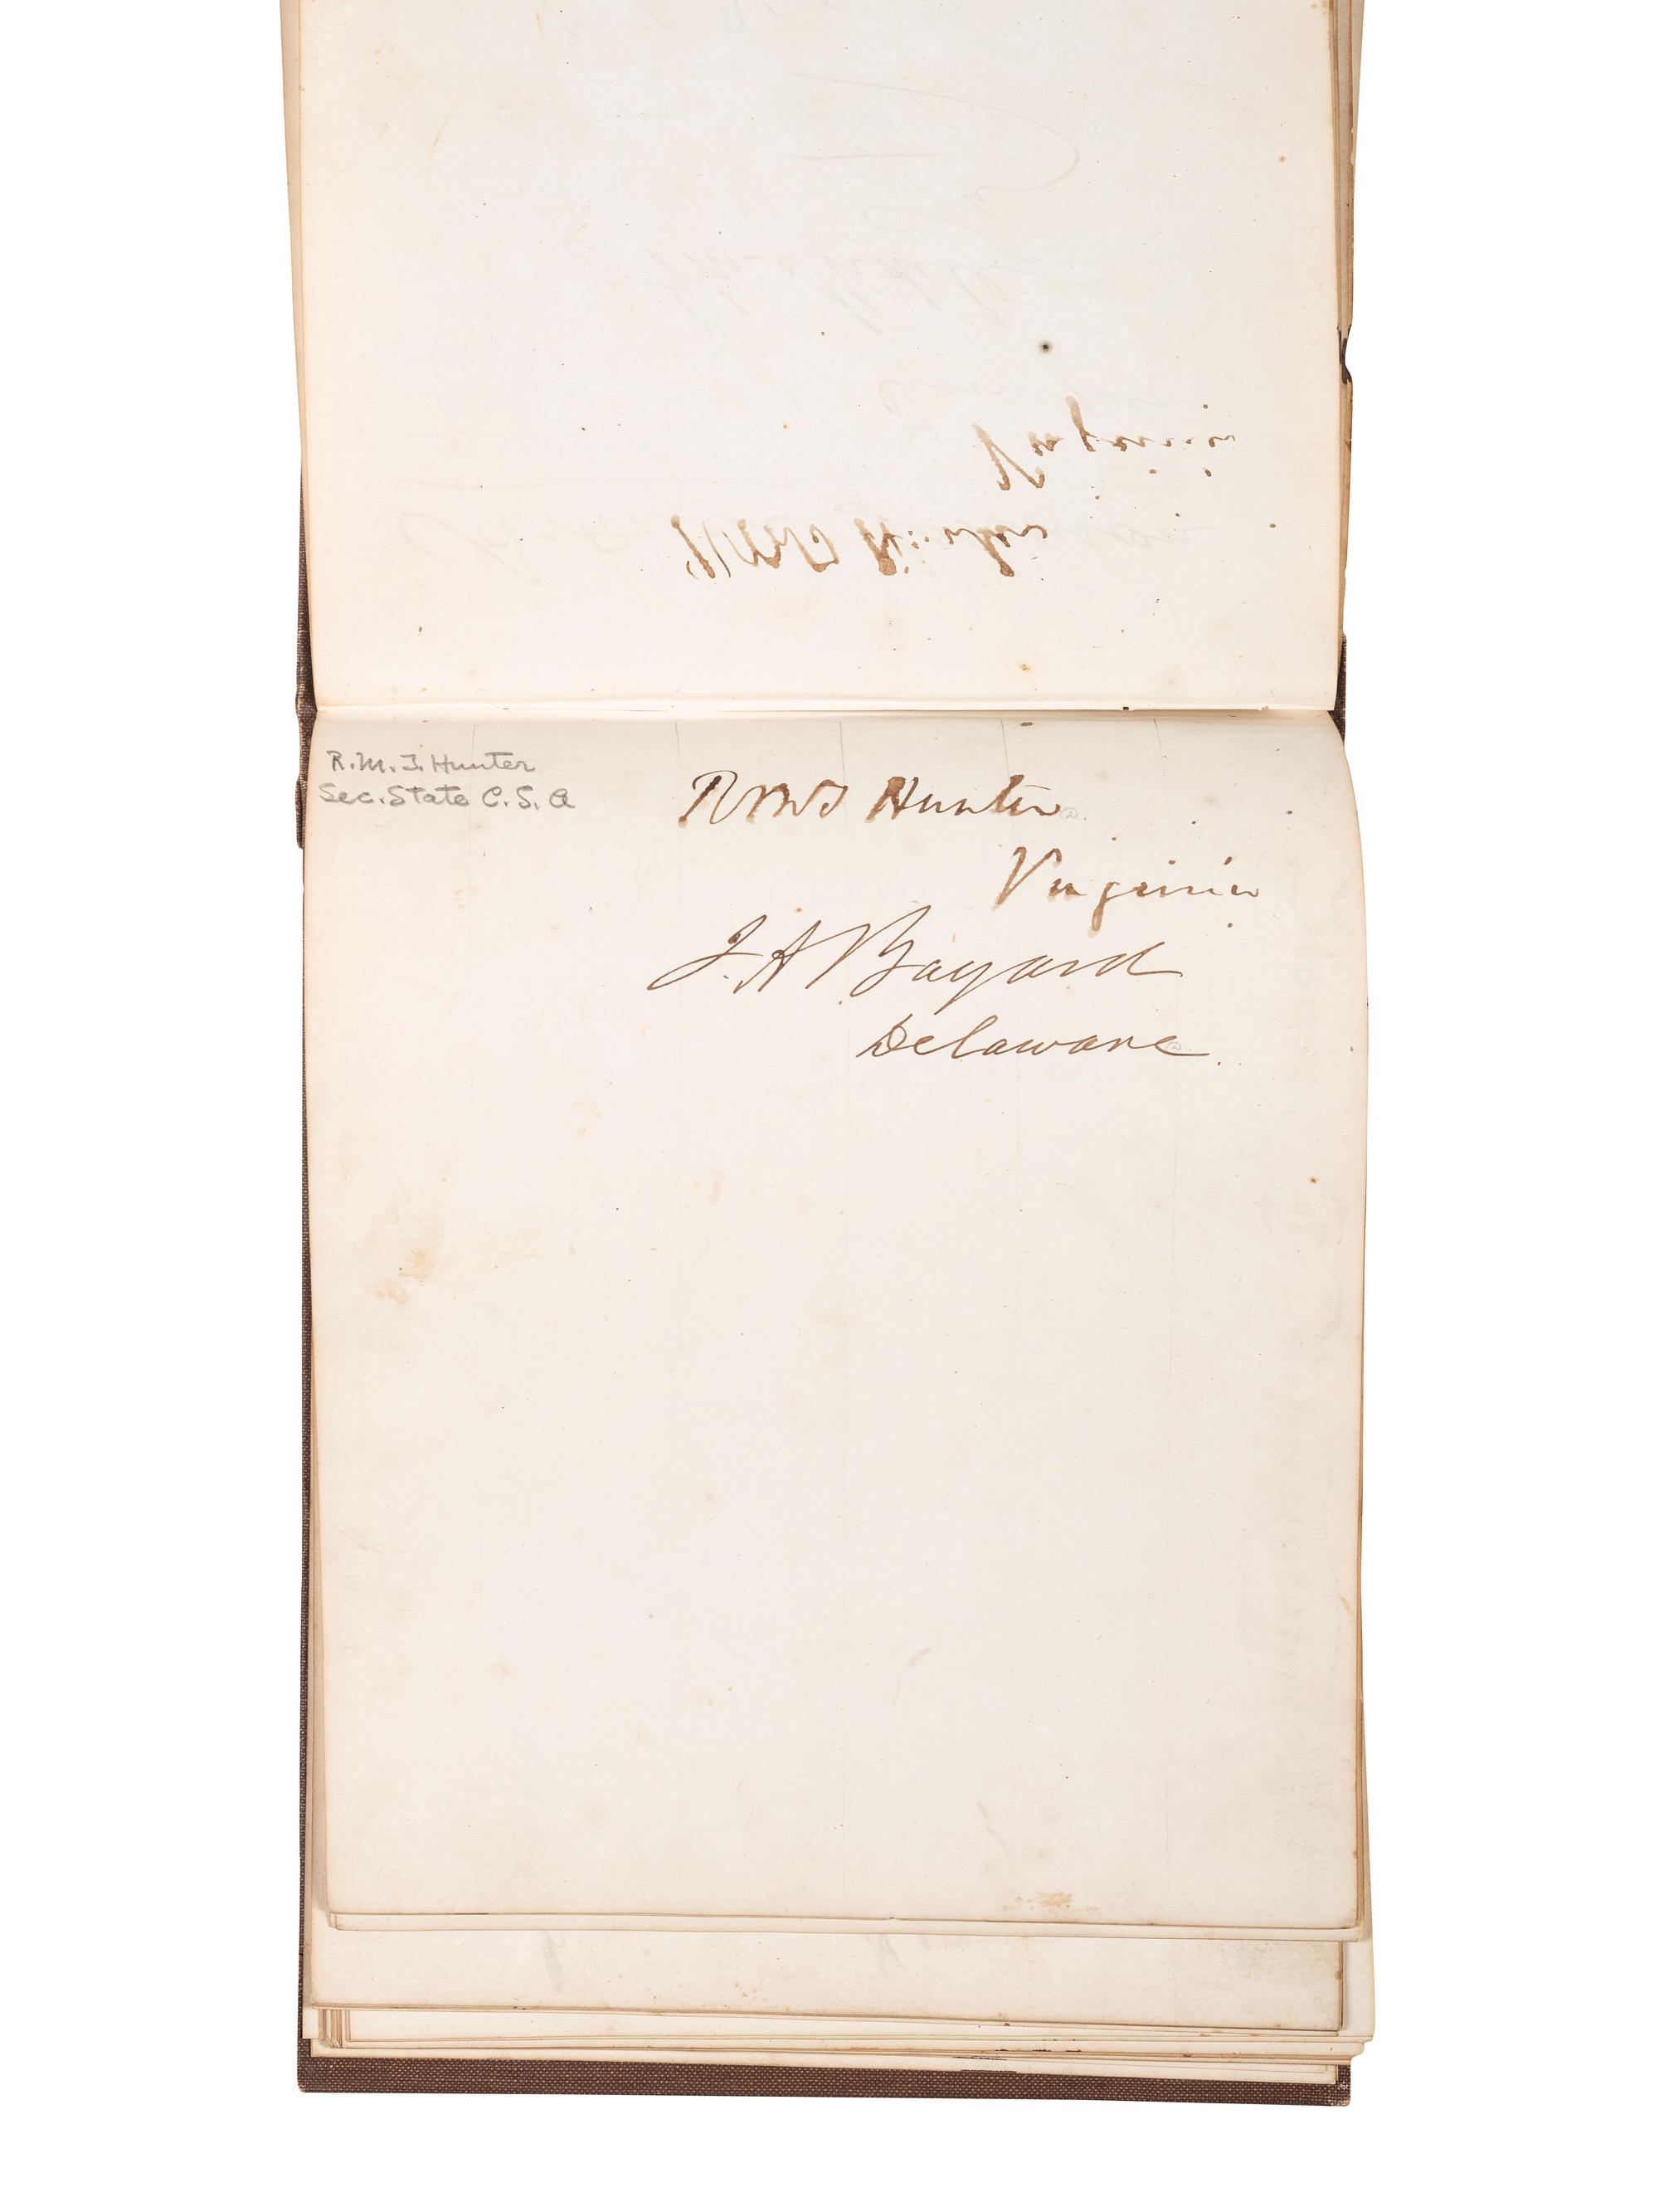 R.M.T. Hunter
Sec. State C. S. A
RMT Hunter
Virginia
J. A Bayard
Delaware.